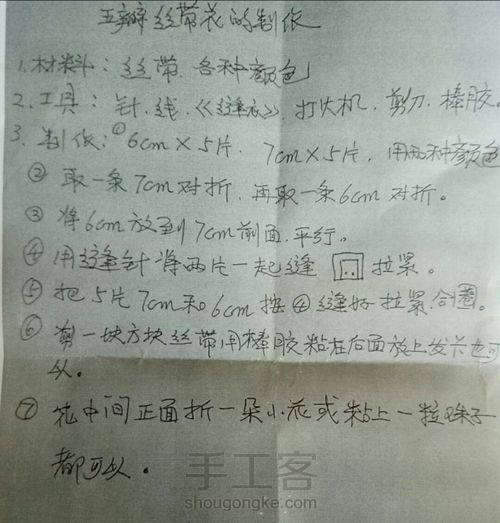 五瓣丝带花的制作
1.材料：丝带.各种颜色
2.工具：针.线.《缝衣》.打火机.剪刀.棒胶.
3.制作：①6cm×5片.7cm×5片.用两种颜色
②取一条7cm对折.再取一条6cm对折。
③将6cm放到7cm前面.平行。
④用缝针将两片一起缝 拉紧。
⑤把5片7cm和6cm按④缝好拉紧.合圈。
⑥剪一块方块丝带用棒胶粘在后面放上发卡也可
以。
⑦花中间正面折一朵小花或粘上一粒珠子
都可以。
手工客
shougongke.com